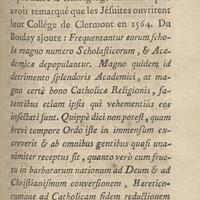 avoir remarqué que les Jésuites ouvrirent
leur Collége de Clermont en 1564. Du
Boulay ajoute : Frequentantur eorum scho-
læ magno numero Scholasticorum, & Aca-
demicæ depopulantur. Magno quidem id
detrimento splendoris Academici, at ma-
gno certè bono Catholicæ Religionis, fa-
tentibus etiam ipsis qui vehementiùs eos
insectati sunt. Quippè dici non potest, quam
brevi tempore Ordo iste in immensum ex-
creverit & ab omnibus gentibus quasi una-
nimiter receptus sit, quanto verò cum fruc-
tu in barbararum nationum ad Deum & ad
Christianismum conversionem, Hæretico-
rumque ad Catholicam fidem reductionem